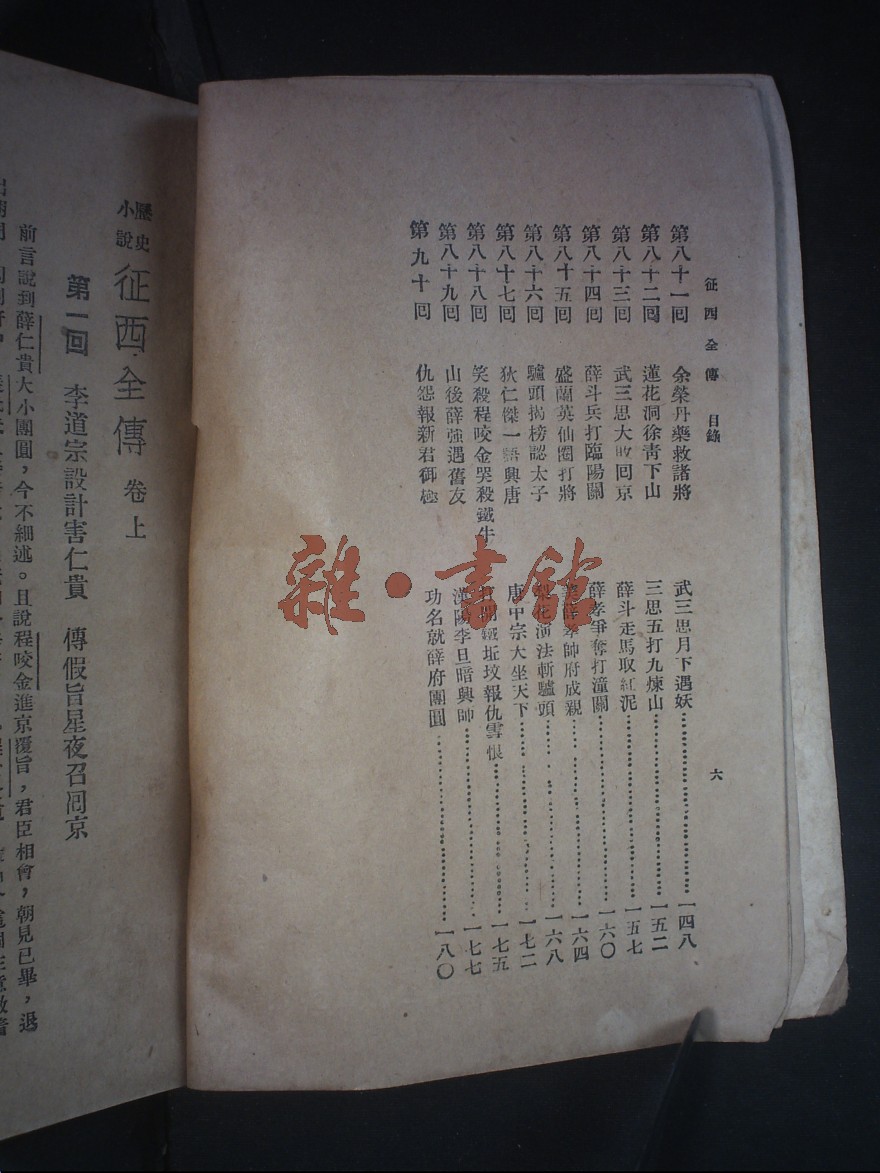 征西全傳 目錄 六
第八十一回 余榮丹藥救諸將 武三思月下遇妖 一四八
第八十二回 蓮花洞徐青下山 三思五打九煉山 一五二
第八十三回 武三思大敗回京 薛斗走馬取紅泥 一五七
第八十四回 薛斗兵打臨陽關 薛孝爭奪打潼關 一六〇
第八十五回 盛蘭英仙圈打將 薛孝帥府成親 一六四
第八十六回 驢頭揭榜認太子 演法斬驢頭 一六八
第八十七回 狄仁傑一語興唐 唐中宗大坐天下 一七二
第八十八回 笑殺程咬金哭殺鐵牛 開鐵坵坟報仇雪恨 一七五
第八十九回 山後薛強遇舊友 漢陽李旦暗興師 一七七
第九十回 仇怨報新君御極 功名就薛府團圓 一八〇
歷史小說 征西全傳 卷上
第一回 李道宗設計害仁貴 傳假旨星夜召回京
前言說到薛仁貴大小團圓，今不細述。且說程咬金進京覆旨，君臣相會，朝見已畢，退
雜·書館